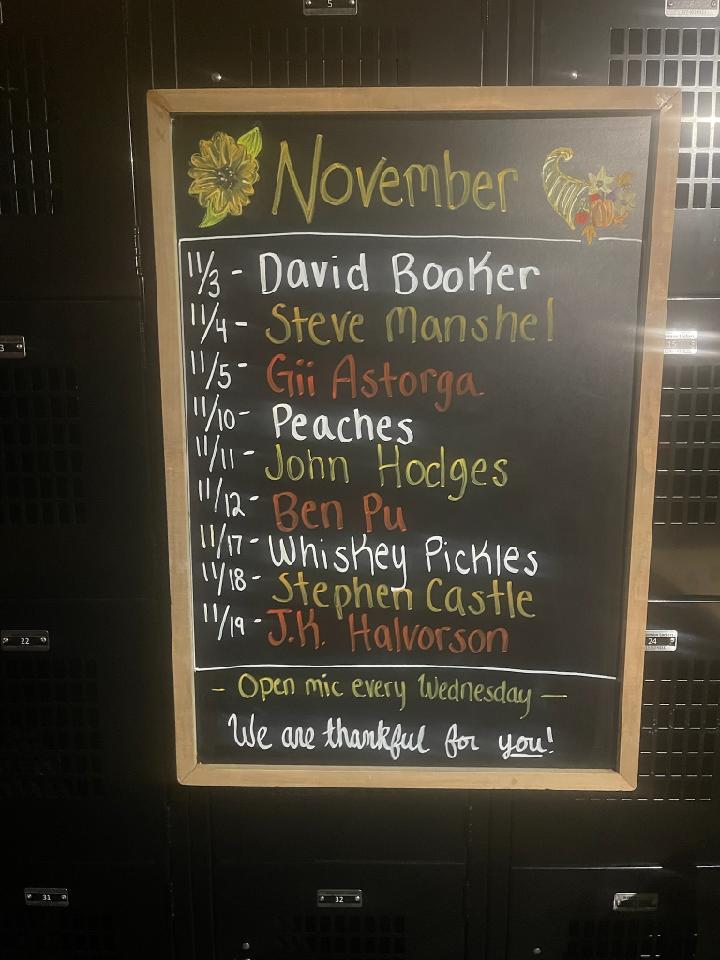 5
November
11/3 - David Booker
11/4 - Steve Manshel
11/5 - Gii Astorga
11/10 - Peaches
11/11 - John Hodges
11/12 - Ben Pu
11/17 - Whiskey Pickles
11/18 - Stephen Castle
11/19 - J.K. Halvorson
- Open mic every Wednesday -
We are thankful for you!
3
22
24
31
32